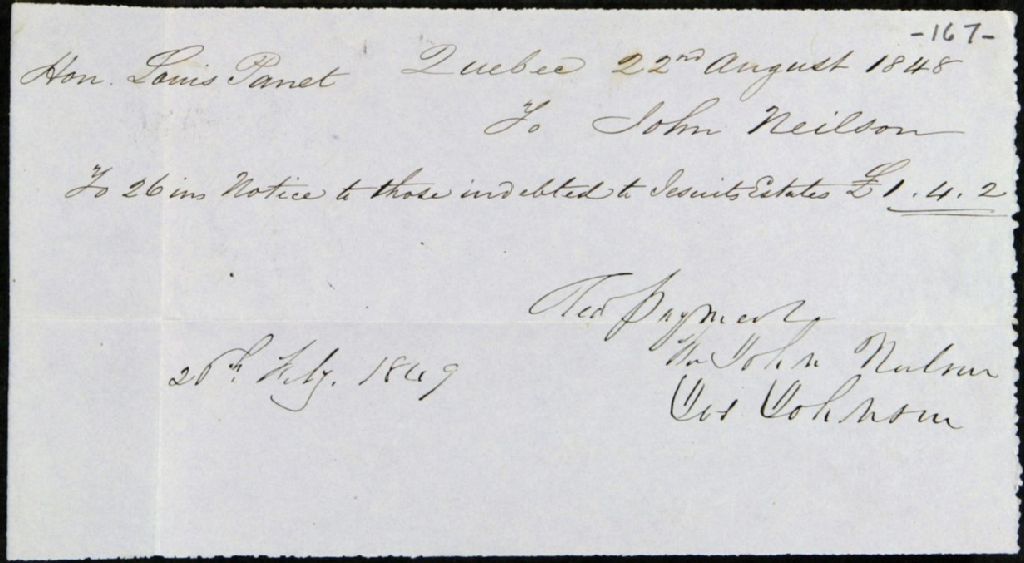 -167-
Hon. Louis Panet Quebec 22nd August 1848
To John Neilson
To 26 ins Notice to those indebted to Jesuits Estates £ 1.4.2
Recd payment
John Neilson
20th Feby. 1849
Jos Johnson